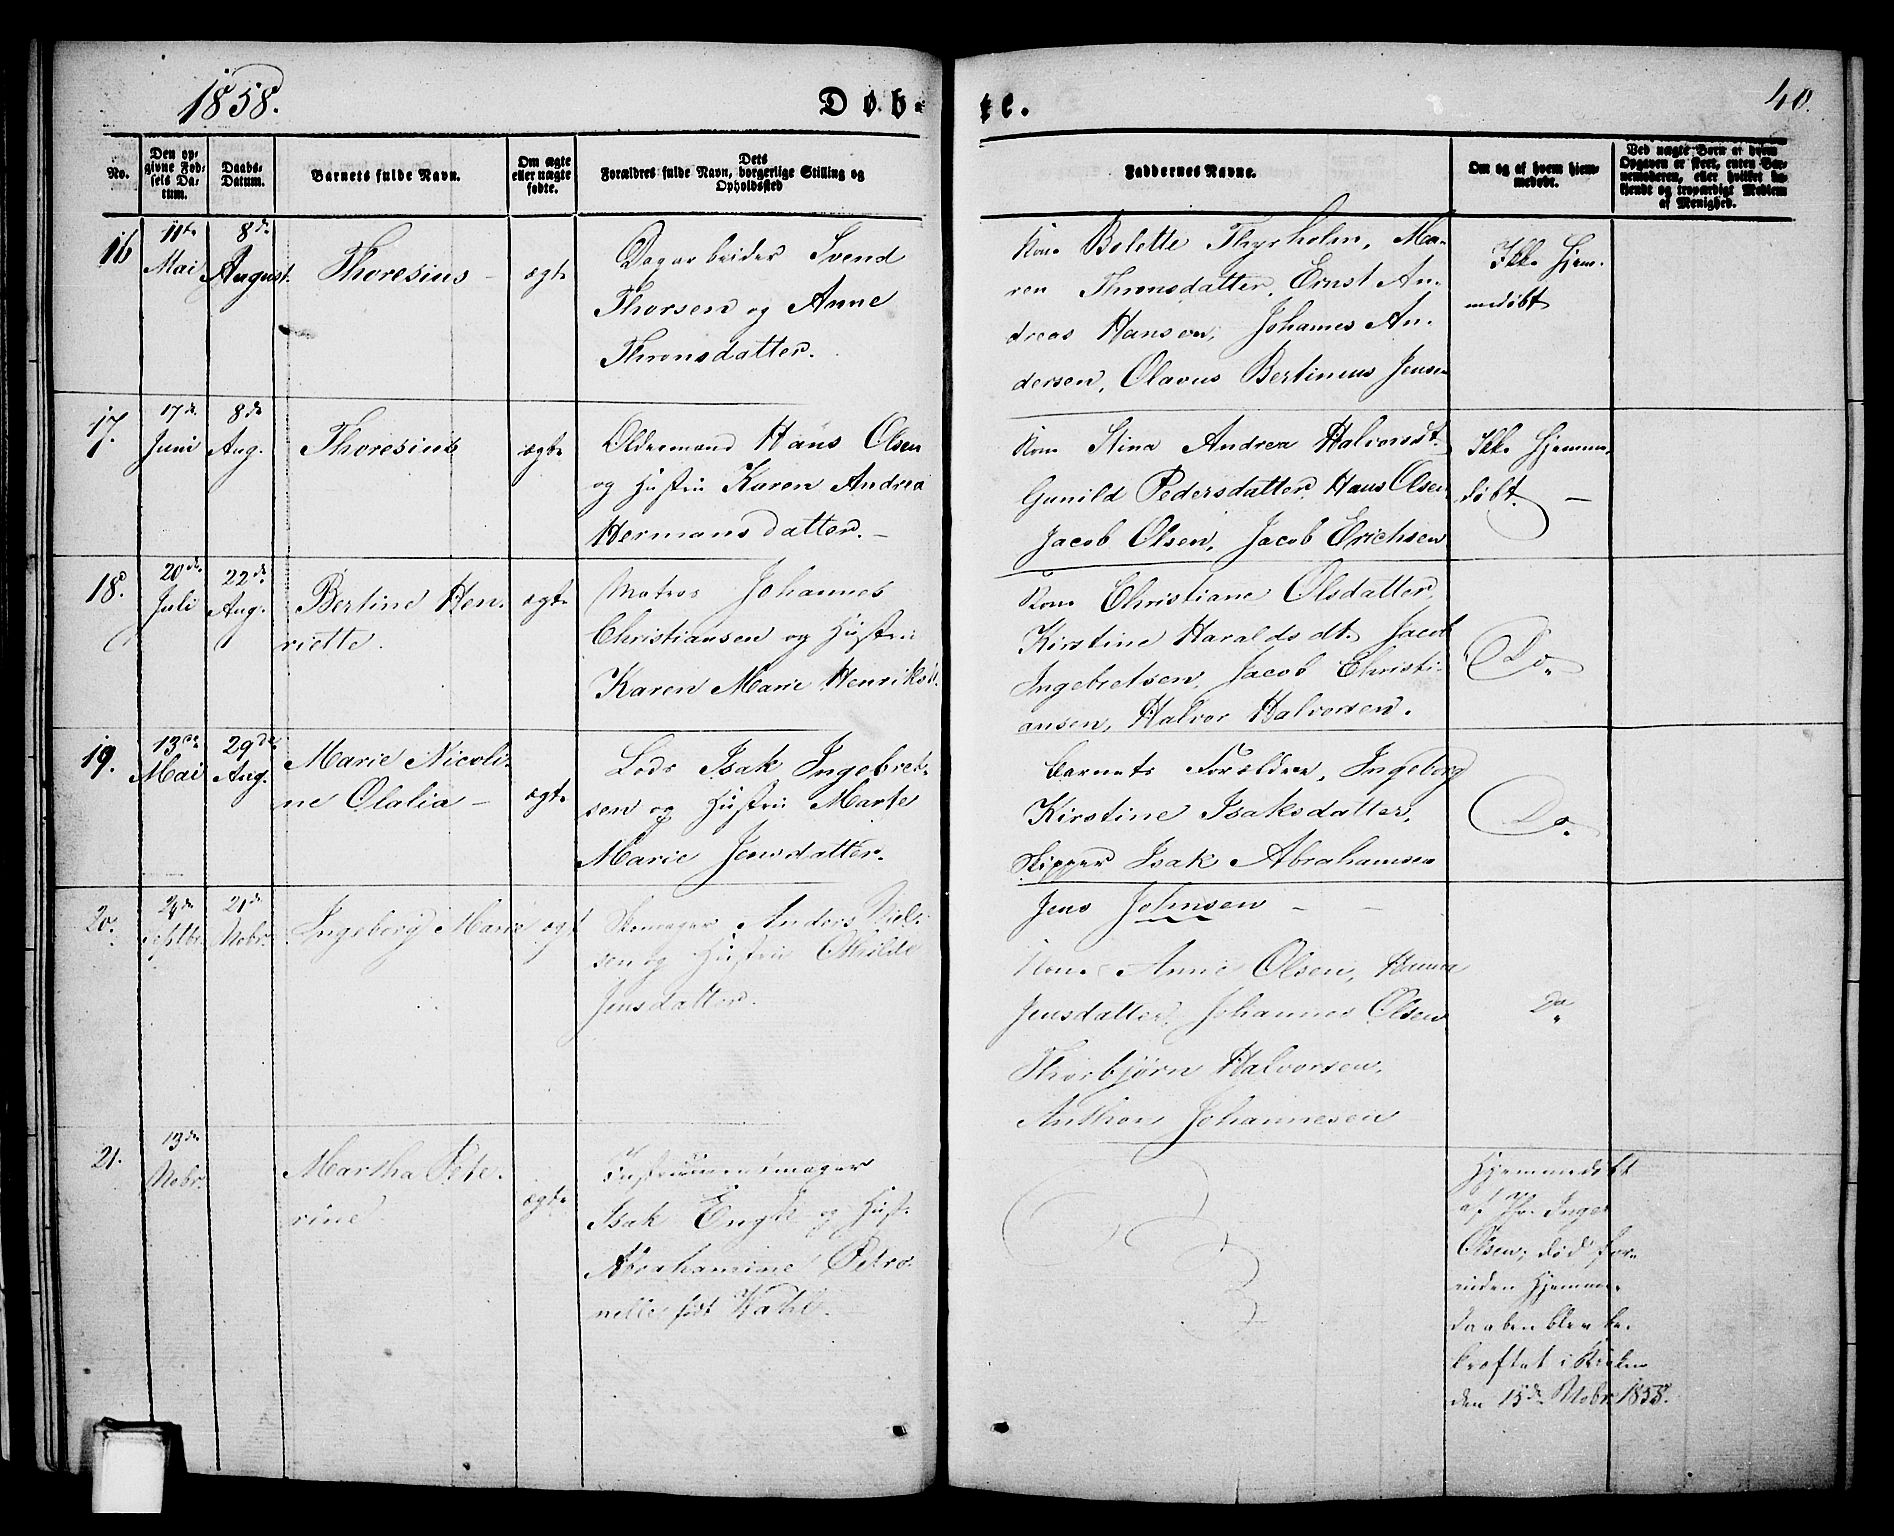 1858.
Døb-
te.
40.
No.
Den op-
givne Fød-
sels Da-
tum.
Daabs-
Datum.
Barnets fulde Navn.
Om ægte
eller uægte
fødte.
Dets
Forældres fulde Navn, borgerlige Stilling og
Opholdssted
Faddernes Navne.
Om og af hvem hjem-
medøbt.
Ved uægte Børn af hvem
Opgaven er skeet, enten Bar-
nemoderen, eller hvilket be-
kjendt og troværdigt Medlem
af Menighed.
16
11te
Mai
8de
August.
Thoresius -
ægte
Dagarbeider Svend
Thorsen og Anne
Thronsdatter.
Kone Bolette Thyrholm, Ma-
ren Thronsdatter, Ernst An-
dreas Hansen, Johannes An-
dersen, Olavus Bertinius Jensen
Ikke Hjem-
medøbt
17.
17de
Juni
8de
Aug.
Thoresius
ægte
Oldermand Hans Olsen
og Hustru Karen Andrea
Hermansdatter. -
Kone Stina Andrea Halvorsdt.
Gunild Pedersdatter, Hans Olsen,
Jacob Olsen, Jacob Erichsen
Ikke Hjemme
døbt. -
18.
20de
Juli
22de
Aug.
Bertine Hen-
riette.
ægte
Matros Johannes
Christiansen og Hustru
Karen Marie Henriksdt.
Kone Christiane Olsdatter,
Kirstine Haraldsdt. Jacob
Ingebretsen, Jacob Christi-
ansen, Halvor Halvorsen.
Do.
19.
13de
Mai
29de
Aug.
Marie Nicoli-
ne Olalia -
ægte
Lods Isak Ingebret-
sen og Hustru Marte
Marie Jensdatter.
Barnets Forældre, Ingeborg
Kirstine Isaksdatter,
Skipper Isak Abrahamsen
Jens Johnsen - -
Do.
20.
Septbr.
21de
Nobr.
Ingeborg Marie
ægt
Skomager Anders Niel-
sen og Hustru Othilde
Jensdatter.
Kone Anne Olsen,
Jensdatter, Johannes Olsen
Thorbjørn Halvorsen,
Anthon Johannesen
Do
21.
13de
Nobr.
Martha Pete-
rine
ægte
Instrumentmager
Isak Engh og Hust.
Abrahamine Petro-
nelle født
Hjemmedøbt
af Inger
Olsen, død for-
inden Hjemme-
daaben blev be-
kræftet i Kirken
den 15de Nobr. 1858.